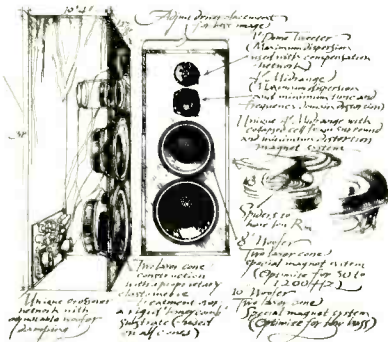 10"41"
Adjust driver placement
for best image
1" Dome Tweeter
(Maximum dispersion
used with compensation
network)
4" Midrange
(Maximum dispersion
and minimum time and
frequency domain distortion)
Unique 4" Midrange with
cell foam surround
and minimum distortion
magnet system
Spiders to
have low Rm
8" Woofer
Two layer cone
Special magnet system
(Optimize for 50 to
1200Hz)
10" Woofer
Two layer cone
Special magnet system
(Optimize for low bass)
Two layer cone
construction
with a proprietary
elastomeric
cement on
a rigid
substrate (based
on all cones)
Unique crossover
network with
adjustable woofer
damping